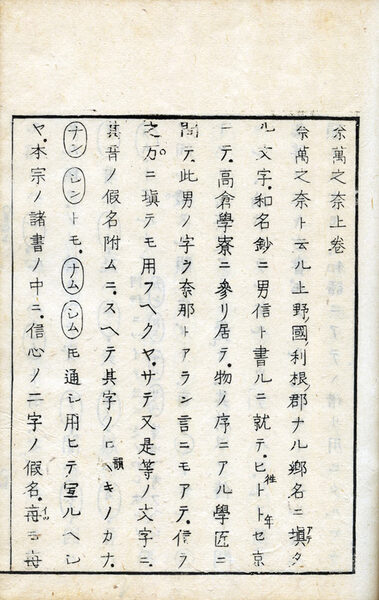 奈萬之奈上卷
奈萬之奈ト云ル上野ノ國利根郡ナル鄕名ニ塡タ
ル文字和名鈔ニ男信ト書ルニ就テヒトトセ京
ニテ高倉學寮ニ參リ居テ物ノ序ニアル學匠ニ
問テ此男ノ字ヲ奈那トアラン言ニモアテ信ヲ
之万ニ塡テモ用フヘクヤサテ又是等ノ文字ニ
其音ノ假名附ムニスヘテ其字ノヒヽキノカナ
ナンシントモナムシムトモ通シ用ヒテ冝ルヘシ
ヤ本宗ノ諸書ノ中ニ信心ノ二字ノ假名